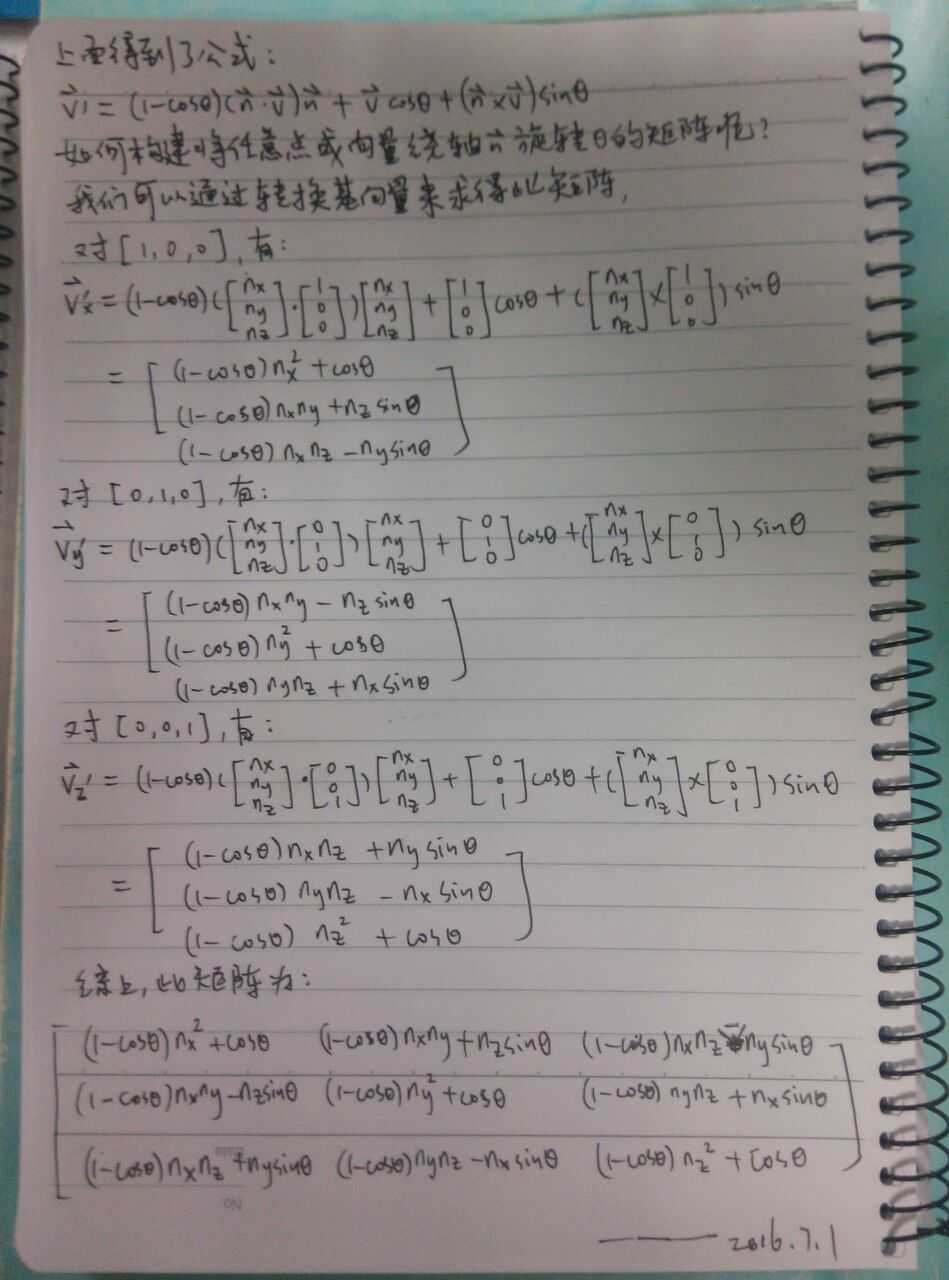 上面得到了公式：
v⃗' = (1-cosθ)(n⃗·v⃗)n⃗ + v⃗cosθ + (n⃗×v⃗)sinθ
如何构建将任意点或向量绕轴n⃗旋转θ的矩阵呢？
我们可以通过转换基向量来求得此矩阵，
对[1,0,0]，有：
v⃗x' = (1-cosθ)([nx ny nz]·[1 0 0])[nx ny nz] + [1 0 0]cosθ + ([nx ny nz]×[1 0 0])sinθ
= [(1-cosθ)nx² + cosθ
(1-cosθ)nxny + nz sinθ
(1-cosθ)nxnz - ny sinθ]
对[0,1,0]，有：
v⃗y' = (1-cosθ)([nx ny nz]·[0 1 0])[nx ny nz] + [0 1 0]cosθ + ([nx ny nz]×[0 1 0])sinθ
= [(1-cosθ)nxny - nz sinθ
(1-cosθ)ny² + cosθ
(1-cosθ)nynz + nx sinθ]
对[0,0,1]，有：
v⃗z' = (1-cosθ)([nx ny nz]·[0 0 1])[nx ny nz] + [0 0 1]cosθ + ([nx ny nz]×[0 0 1])sinθ
= [(1-cosθ)nxnz + ny sinθ
(1-cosθ)nynz - nx sinθ
(1-cosθ)nz² + cosθ]
综上，此矩阵为：
[(1-cosθ)nx² + cosθ (1-cosθ)nxny + nz sinθ (1-cosθ)nxnz - ny sinθ
(1-cosθ)nxny - nz sinθ (1-cosθ)ny² + cosθ (1-cosθ)nynz + nx sinθ
(1-cosθ)nxnz + ny sinθ (1-cosθ)nynz - nx sinθ (1-cosθ)nz² + cosθ]
—— 2016.7.1